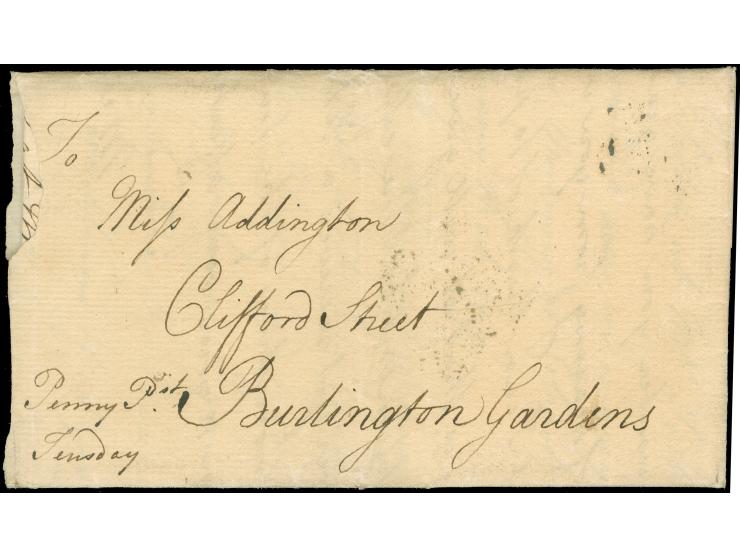 To
Miſs Addington
Clifford Street
Penny Pst. Burlington Gardens
Tuesday